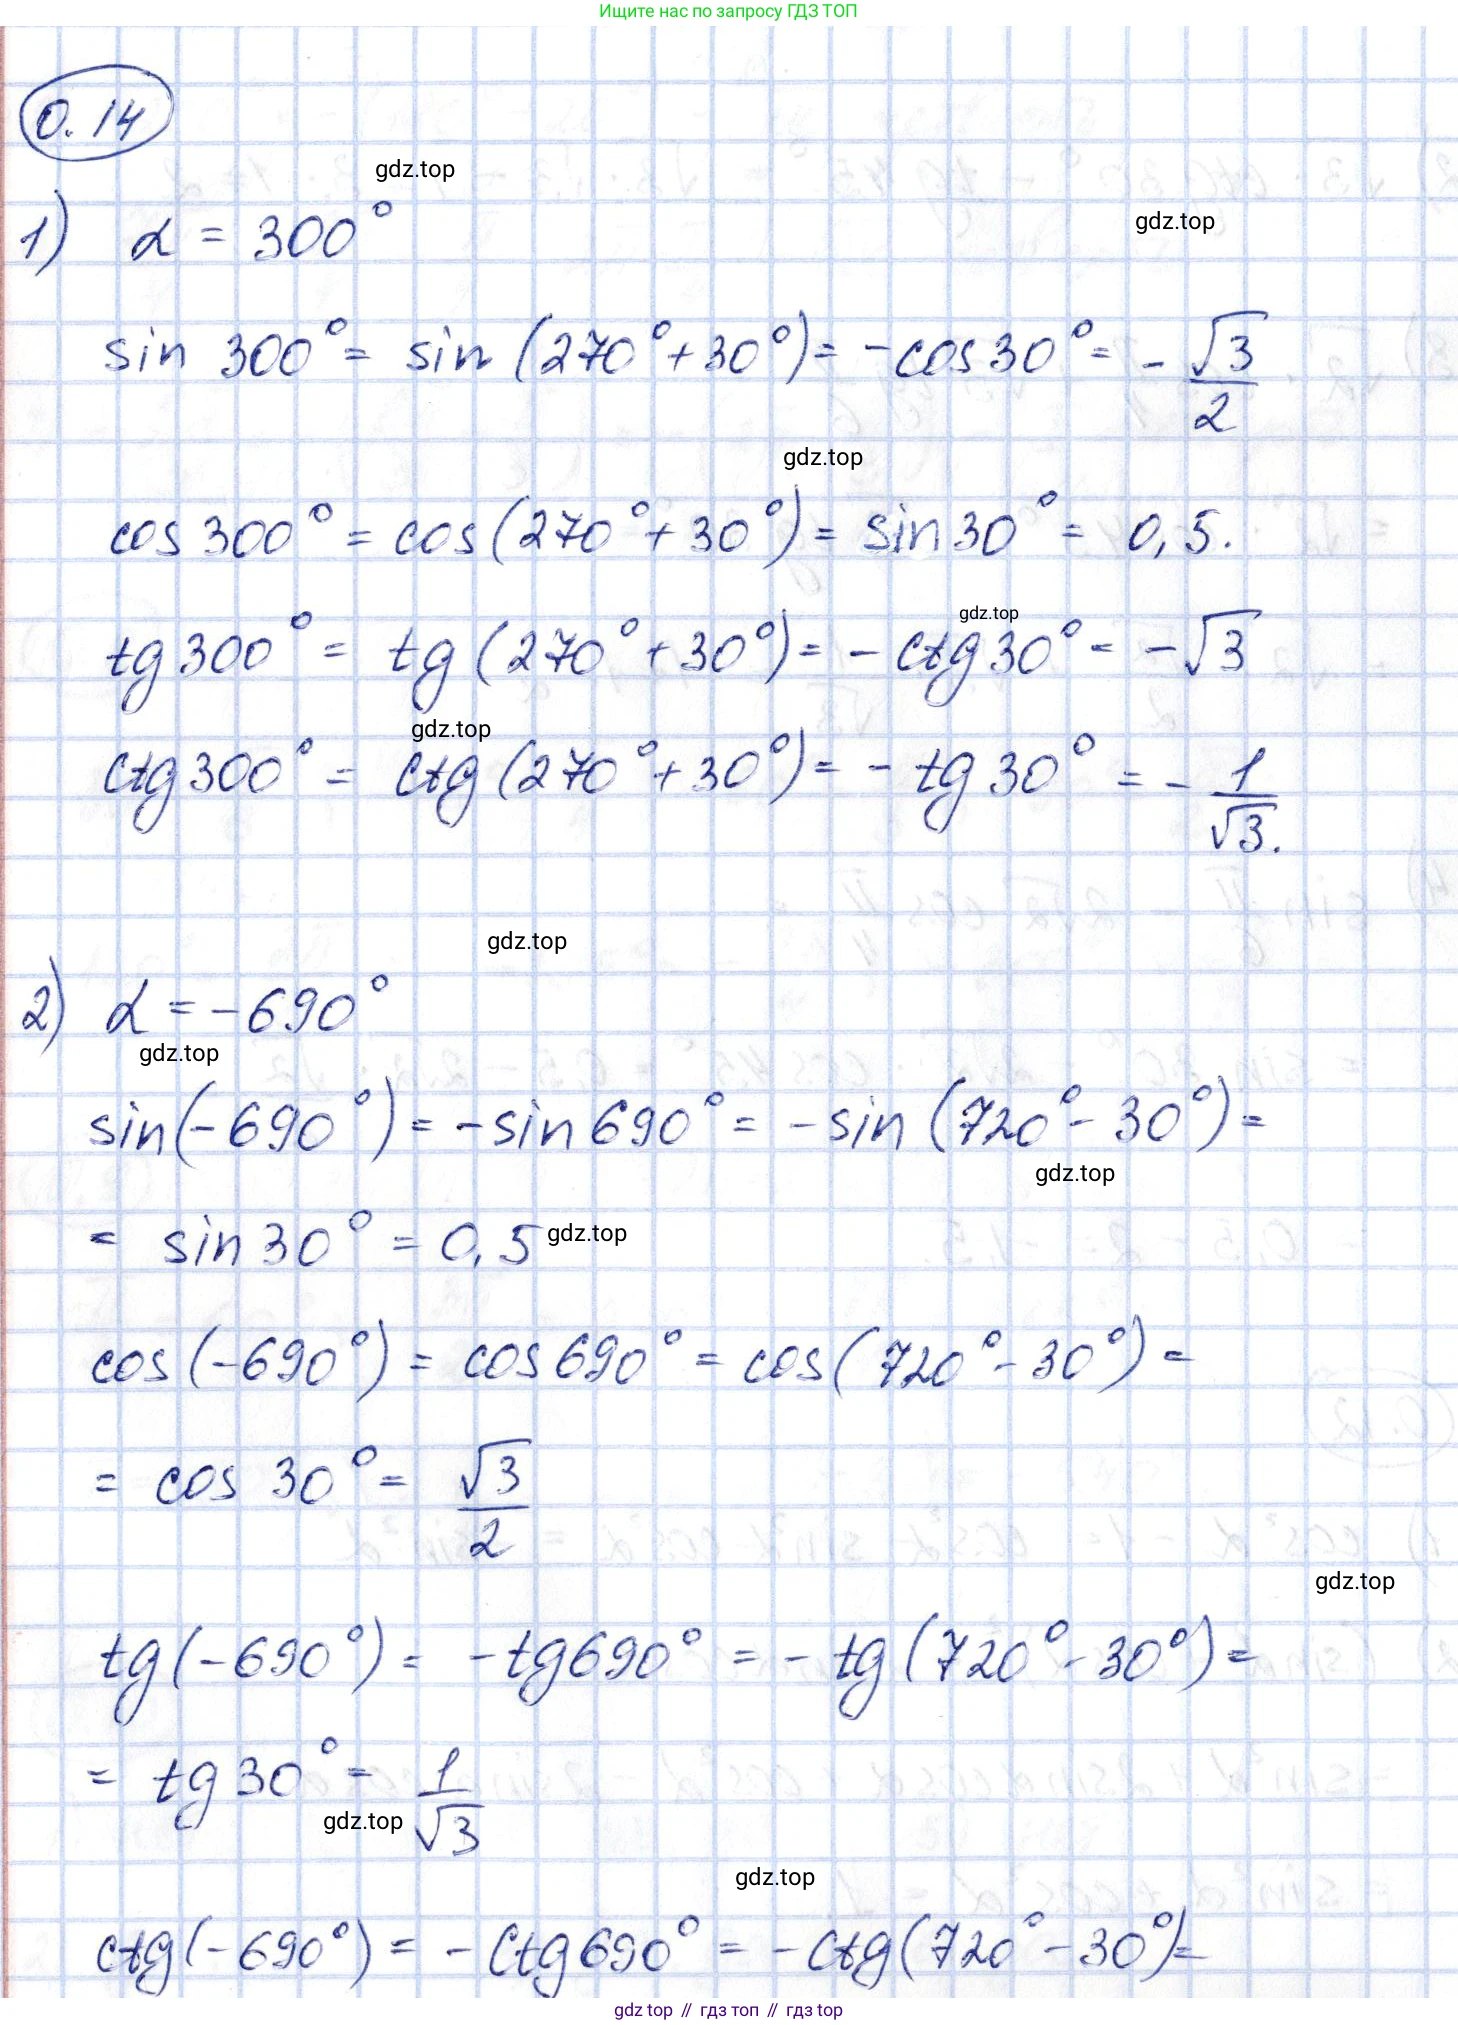 Ищите нас по запросу ГДЗ ТОП
0.14
gdz.top
1) α = 300°
gdz.top
sin 300° = sin (270° + 30°) = - cos 30° = - √3/2
gdz.top
cos 300° = cos (270° + 30°) = sin 30° = 0,5.
gdz.top
tg 300° = tg (270° + 30°) = - ctg 30° = - √3
gdz.top
ctg 300° = ctg (270° + 30°) = - tg 30° = - 1/√3.
gdz.top
2) α = -690°
gdz.top
sin(-690°) = - sin 690° = - sin (720° - 30°) =
gdz.top
= sin 30° = 0,5
gdz.top
cos (-690°) = cos 690° = cos (720° - 30°) =
= cos 30° = √3/2
gdz.top
tg (-690°) = - tg 690° = - tg (720° - 30°) =
= tg 30° = 1/√3
gdz.top
gdz.top
ctg (-690°) = - ctg 690° = - ctg (720° - 30°) =
gdz top // гдз топ // gdz top